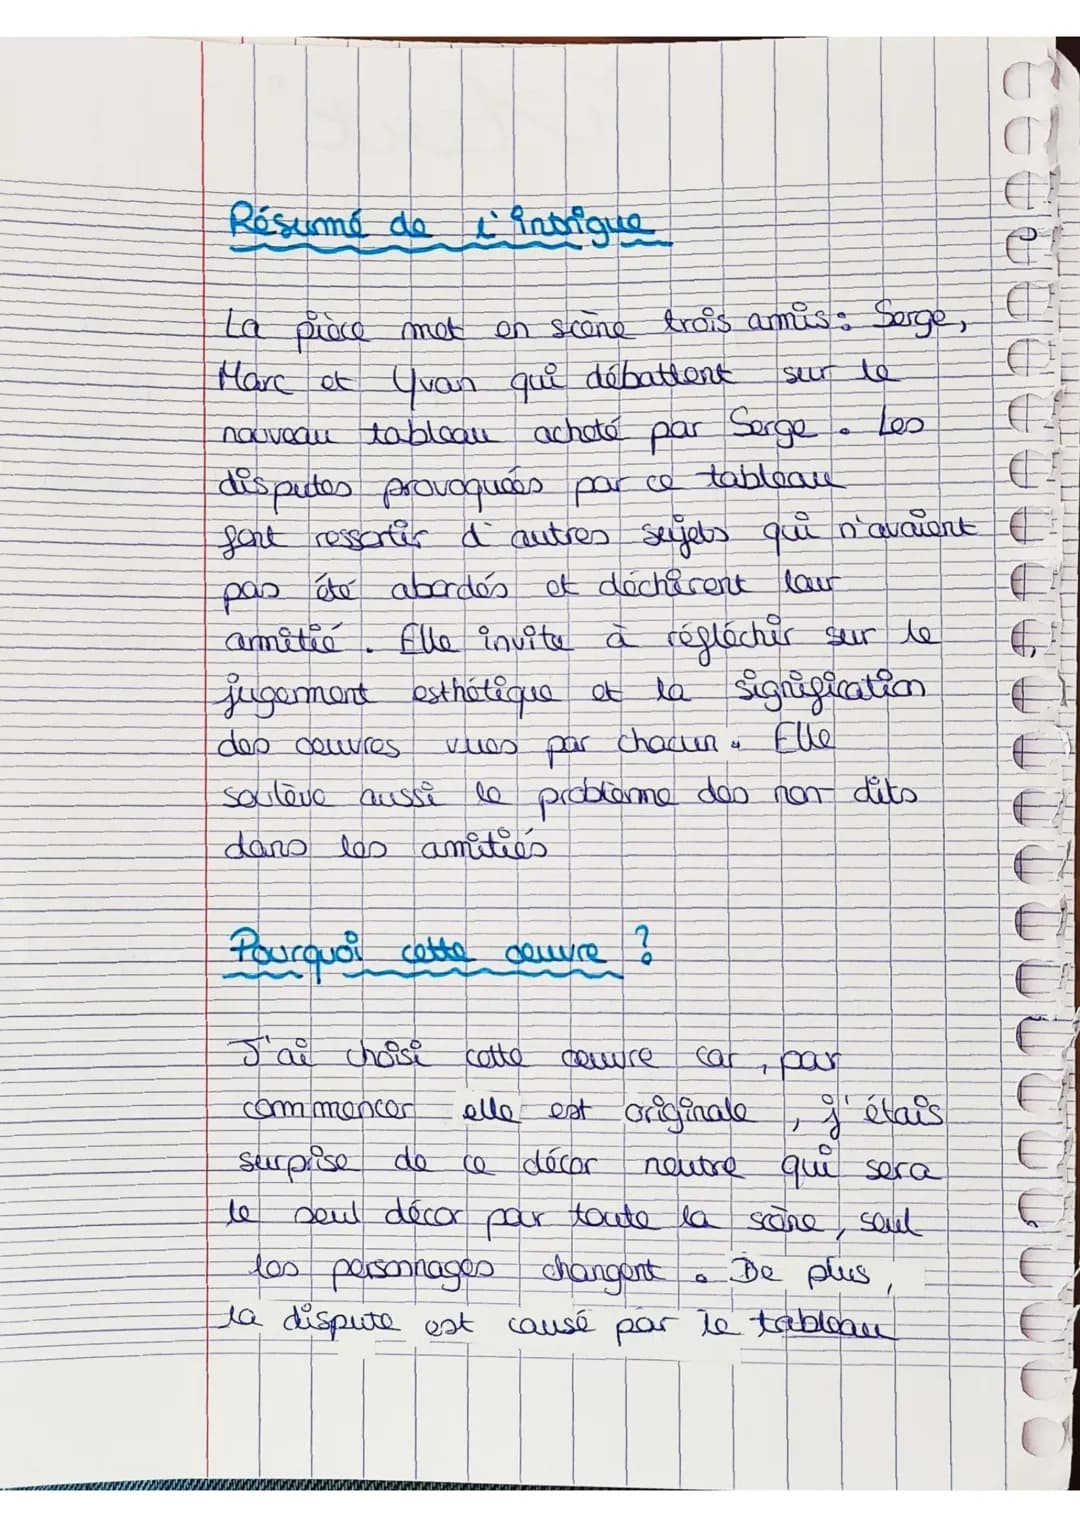 Résumé de l'intrigue
La pièce met en scène trois amis: Serge,
Marc et Yvan qui débattent sur le
nouveau tableau acheté par Serge. Les
disputes provoquées par ce tableau
font ressortir d'autres sujets qui n'avaient
pas été abordés et déchirent leur
amitié. Elle invite à réfléchir sur le
jugement esthétique et la signification
des oeuvres vues par chacun. Elle
soulève aussi le problème des non dits
dans les amitiés
Pourquoi cette oeuvre ?
J'ai choisi cette oeuvre car, par
commencer elle est originale, j'étais
surpise de ce décor neutre qui sera
le seul décor par toute la scène, seul
les personnages changent. De plus,
la dispute est causé par le tableau